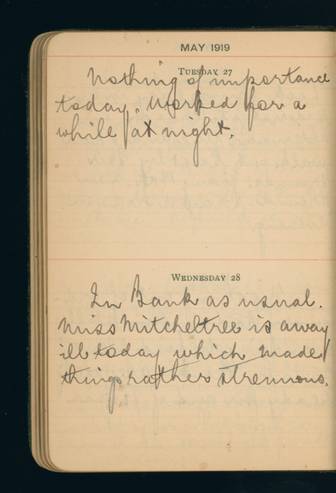 MAY 1919
TUESDAY 27
Nothing of importance
today. Worked for a
while at night.
WEDNESDAY 28
In Bank as usual.
Miss Mitcheltree is away
ill today which made
things rather strenuous.